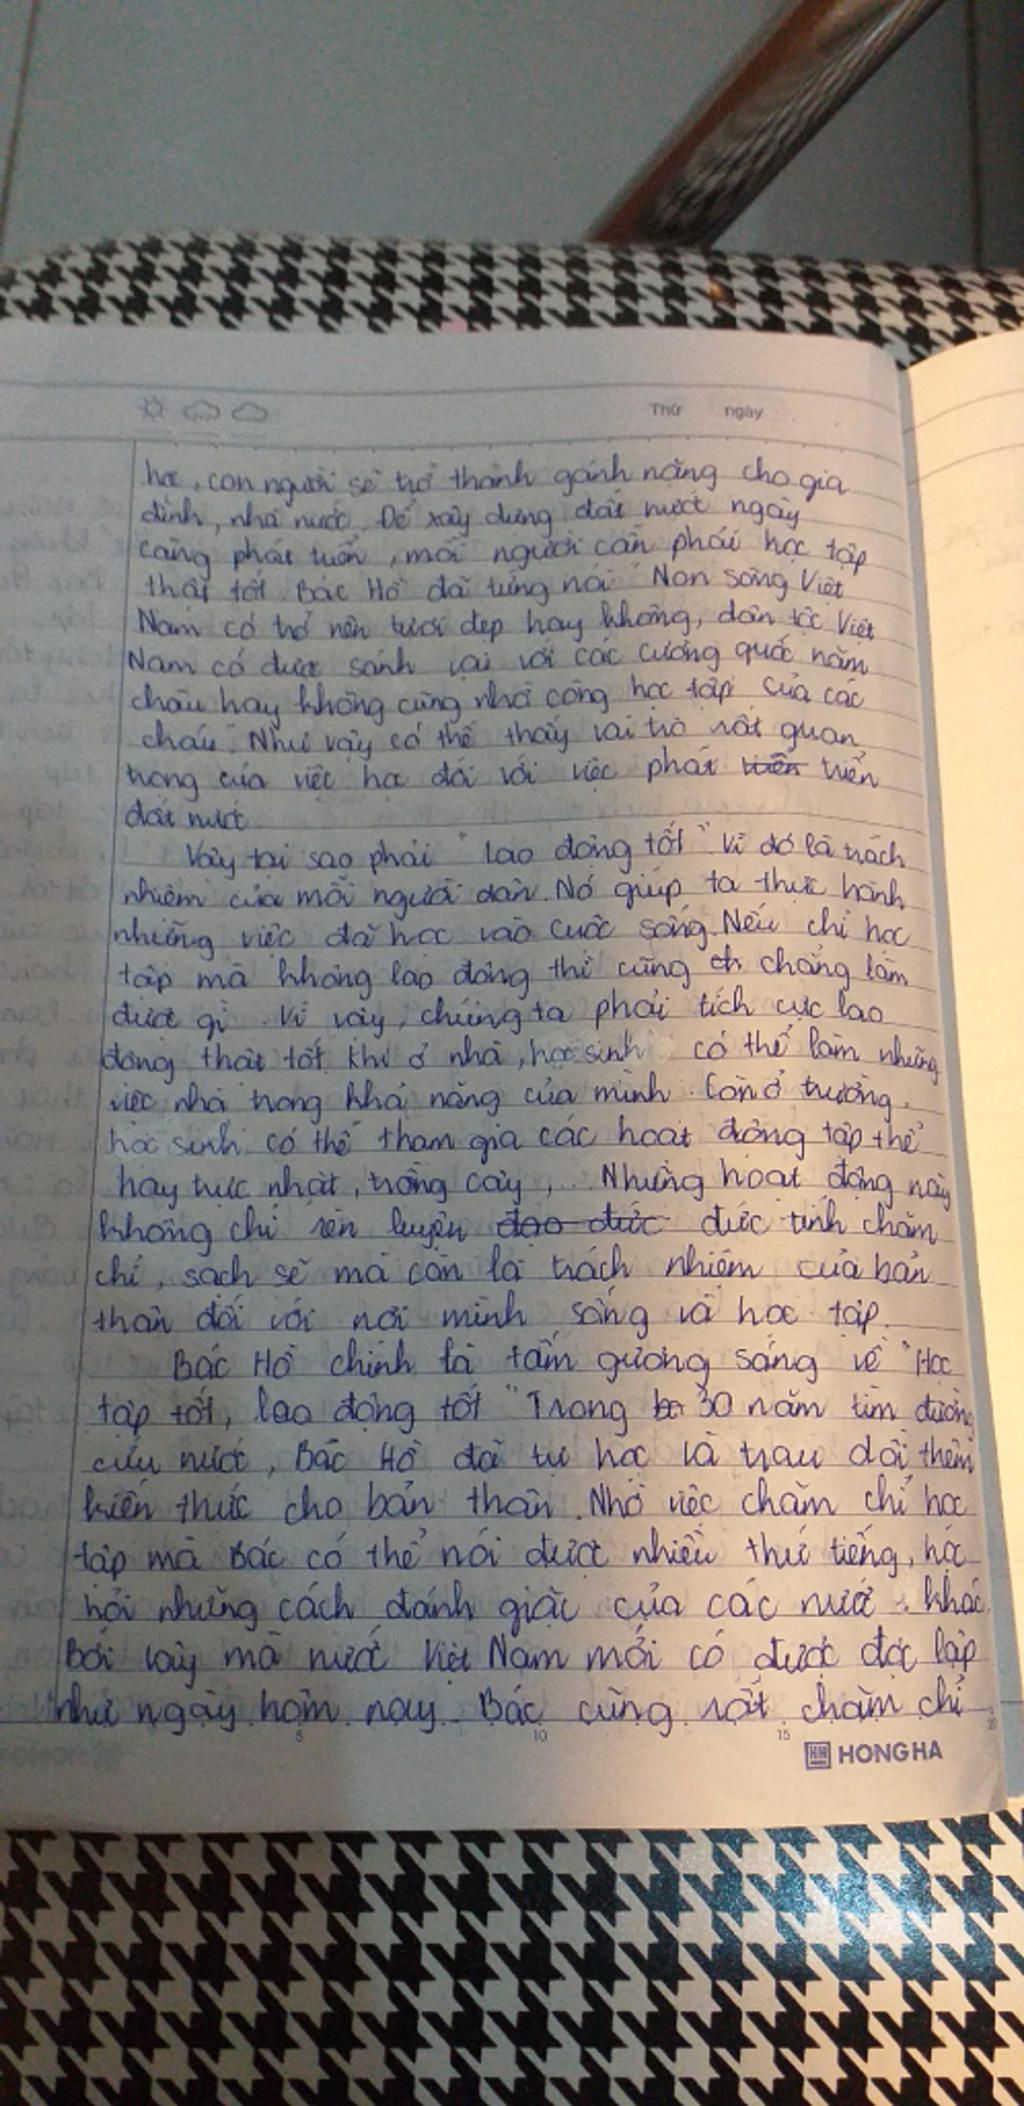 Thứ ngày
học, con người sẽ trở thành gánh nặng cho gia
đình, nhà nước. Để xây dựng đất nước ngày
càng phát triển, mỗi người cần phải học tập
thật tốt. Bác Hồ đã từng nói "Non sông Việt
Nam có trở nên tươi đẹp hay không, dân tộc Việt
Nam có được sánh vai với các cường quốc năm
châu hay không cũng nhờ công học tập của các
cháu". Như vậy có thể thấy vai trò rất quan
trọng của việc học đối với việc phát triển triển
đất nước
Vậy tại sao phải "lao động tốt". Vì đó là trách
nhiệm của mỗi người dân. Nó giúp ta thực hành
những việc đã học vào cuộc sống. Nếu chỉ học
tập mà không lao động thì cũng ch chẳng làm
được gì. Vì vậy, chúng ta phải tích cực lao
động thật tốt. Khi ở nhà, học sinh có thể làm những
việc nhà trong khả năng của mình. Còn ở trường,
học sinh có thể tham gia các hoạt động tập thể
hay trực nhật, trồng cây,... Những hoạt động này
không chỉ rèn luyện đạo đức đức tính chăm
chỉ, sạch sẽ mà còn là trách nhiệm của bản
thân đối với nơi mình sống và học tập.
Bác Hồ chính là tấm gương sáng về "Học
tập tốt, lao động tốt". Trong 30 năm tìm đường
cứu nước, Bác Hồ đã tự học và trau dồi thêm
kiến thức cho bản thân. Nhờ việc chăm chỉ học
tập mà Bác có thể nói được nhiều thứ tiếng, học
hỏi những cách đánh giặc của các nước khác.
Bởi vậy mà nước Việt Nam mới có được độc lập
như ngày hôm nay. Bác cũng rất chăm chỉ
5 10 15 20
HONG HA